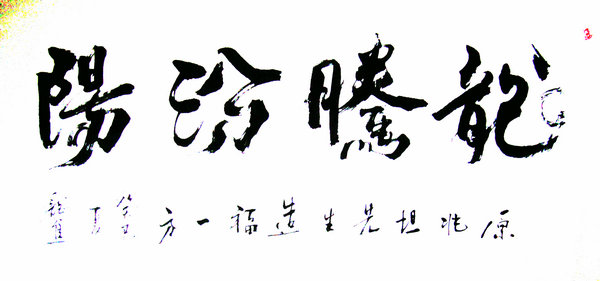 龍騰汾陽
原兆坦先生造福一方